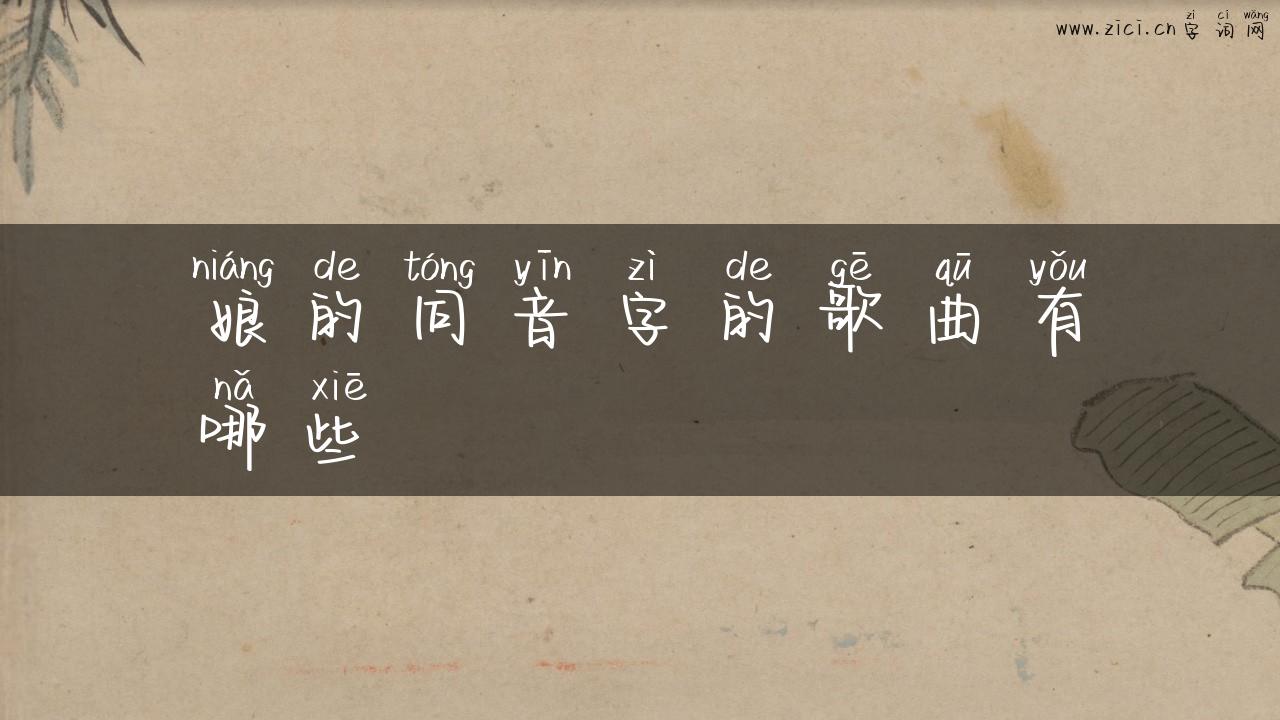 zì cí wǎng
www.zici.cn 字 词 网
niáng de tóng yīn zì de gē qū yǒu
娘 的 同 音 字 的 歌 曲 有
nǎ xiē
哪 些